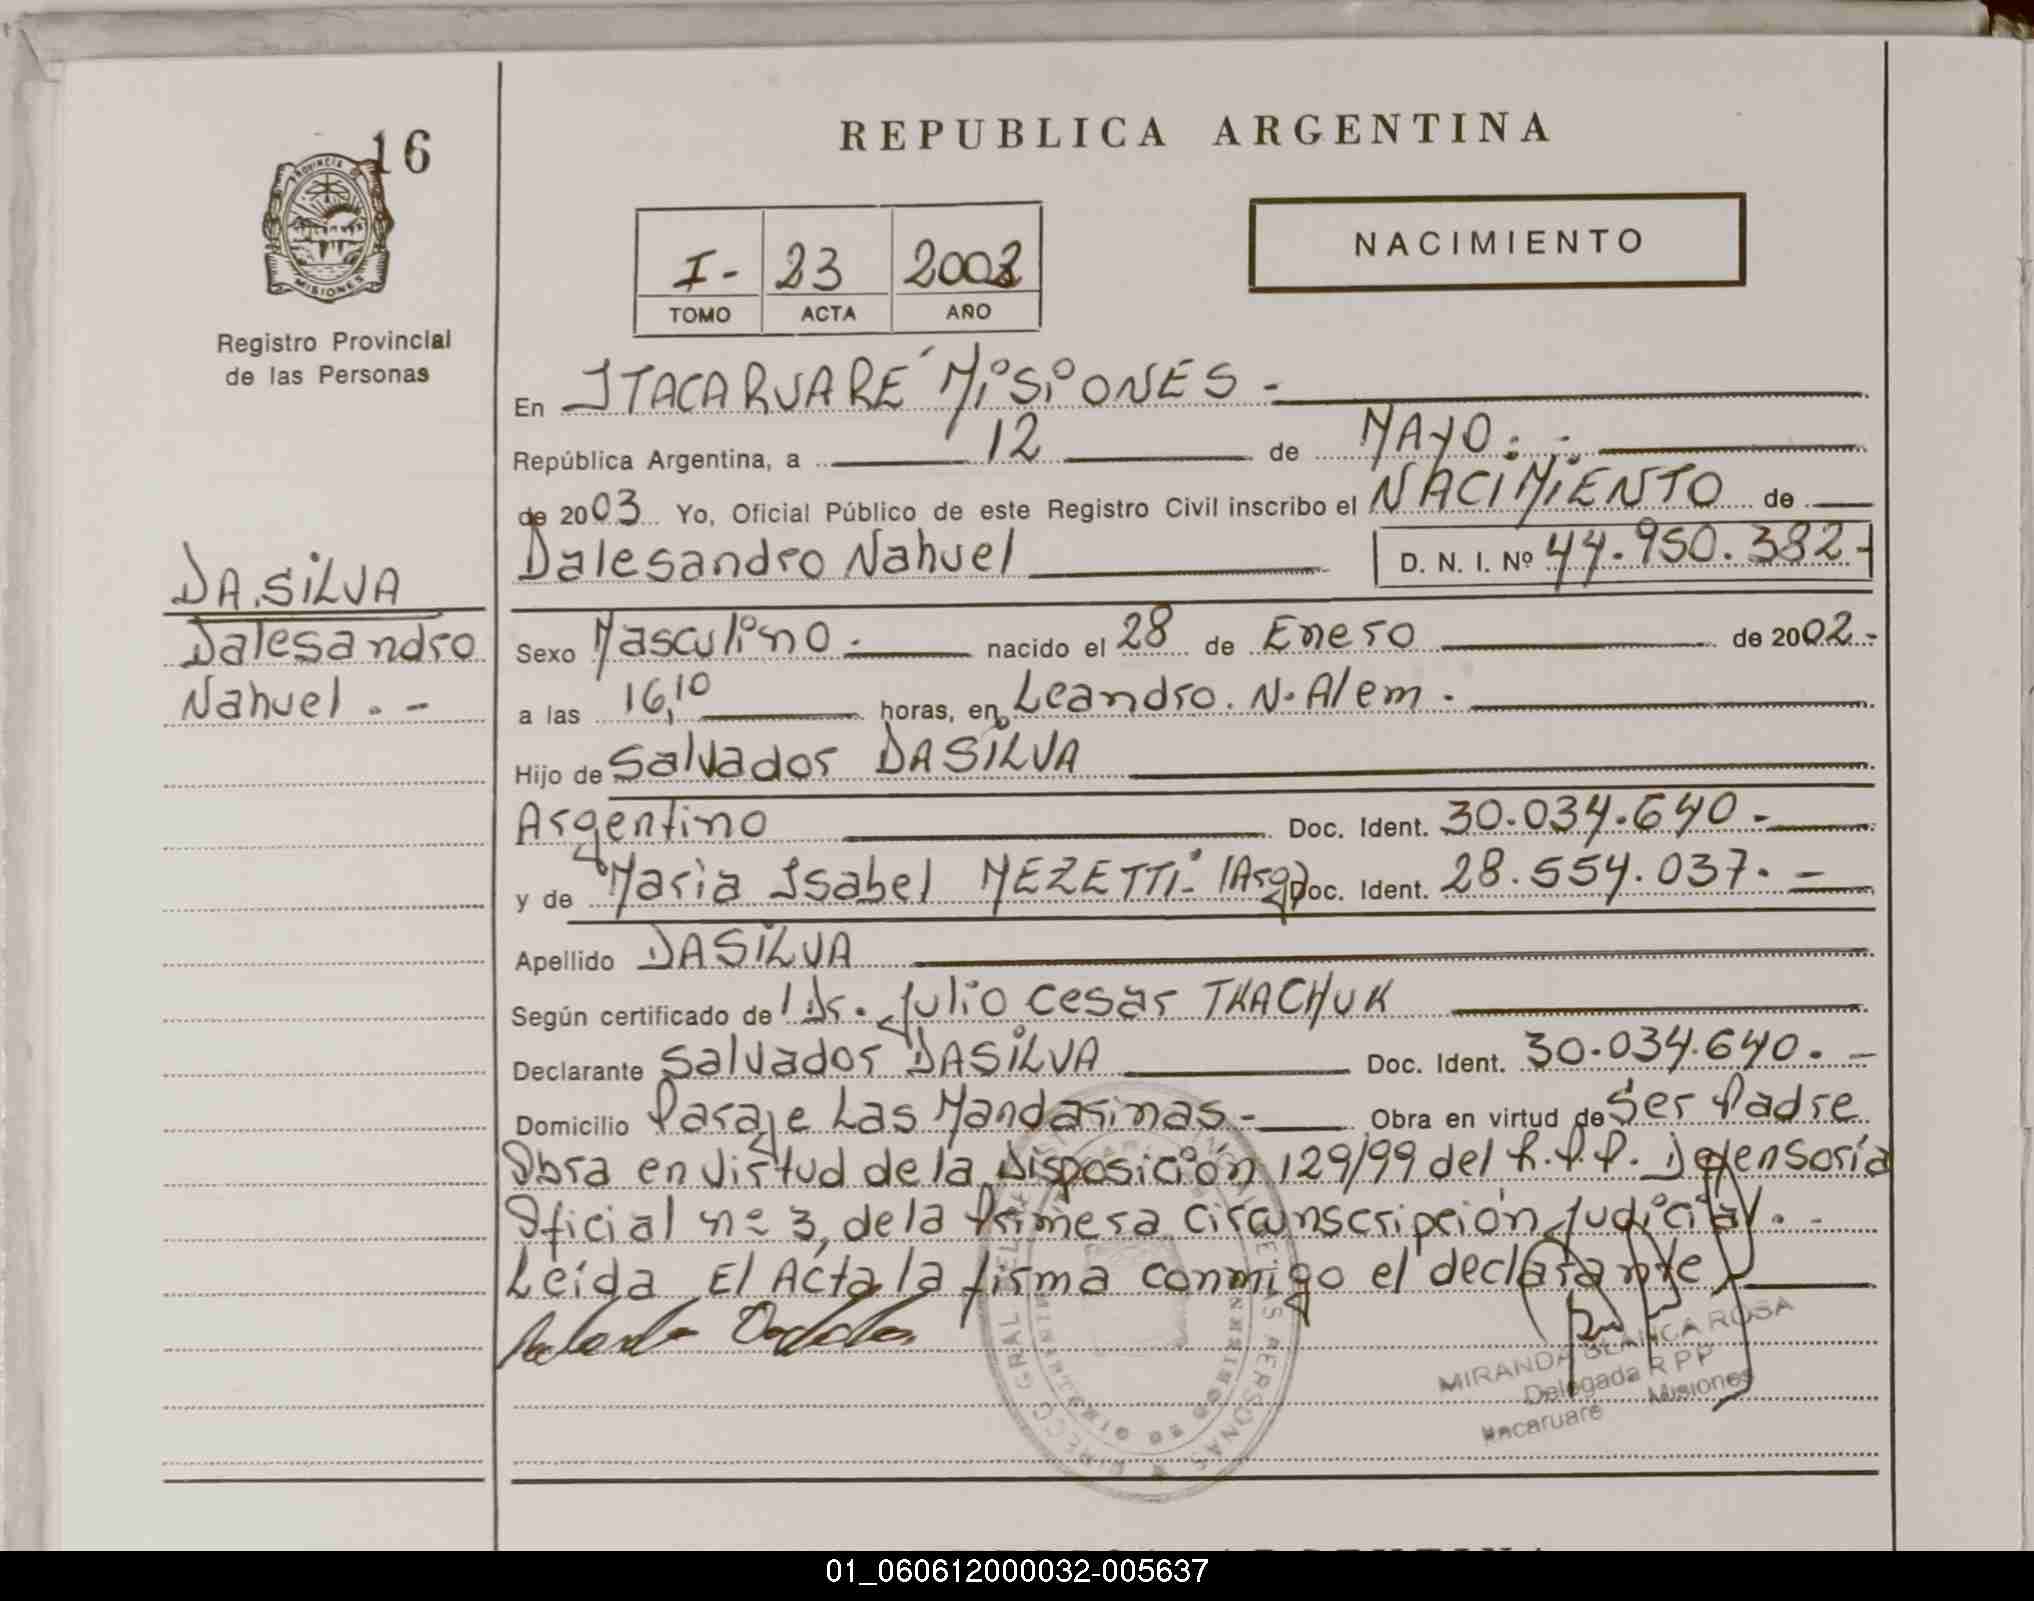 16
PROVINCIA DE
MISIONES
Registro Provincial
de las Personas
DA.SiLVA
Dalesandro
Nahuel . -
REPUBLICA ARGENTINA
I - 23 2003
TOMO ACTA AÑO
NACIMIENTO
En ITACARUARE MiSiONES -
República Argentina, a 12 de MAYO
de 2003 Yo, Oficial Público de este Registro Civil inscribo el NACIMIENTO de
Dalesandro Nahuel D. N. I. Nº 44.950.382.-
Sexo Masculino.- nacido el 28 de Enero de 2002.-
a las 16,10 horas, en Leandro. N. Alem .
Hijo de Salvador DASILVA
Argentino Doc. Ident. 30.034.640.-
y de Maria Isabel MEZETTi- (Arg) Doc. Ident. 28.554.037. -
Apellido DASiLVA
Según certificado de Dr. Julio Cesar TKACHUK
Declarante Salvador DASiLVA Doc. Ident. 30.034.640. -
Domicilio Paraje Las Mandarinas.- Obra en virtud de Ser Padre
Obra en virtud de la Disposición 129/99 del R.P.P. Defensoría
Oficial nº 3, de la Primera Circunscripción Judicial. -
Leída El Acta la firma conmigo el declarante
MIRANDA BLANCA ROSA
Delegada R P P
Itacaruaré Misiones
01_060612000032-005637